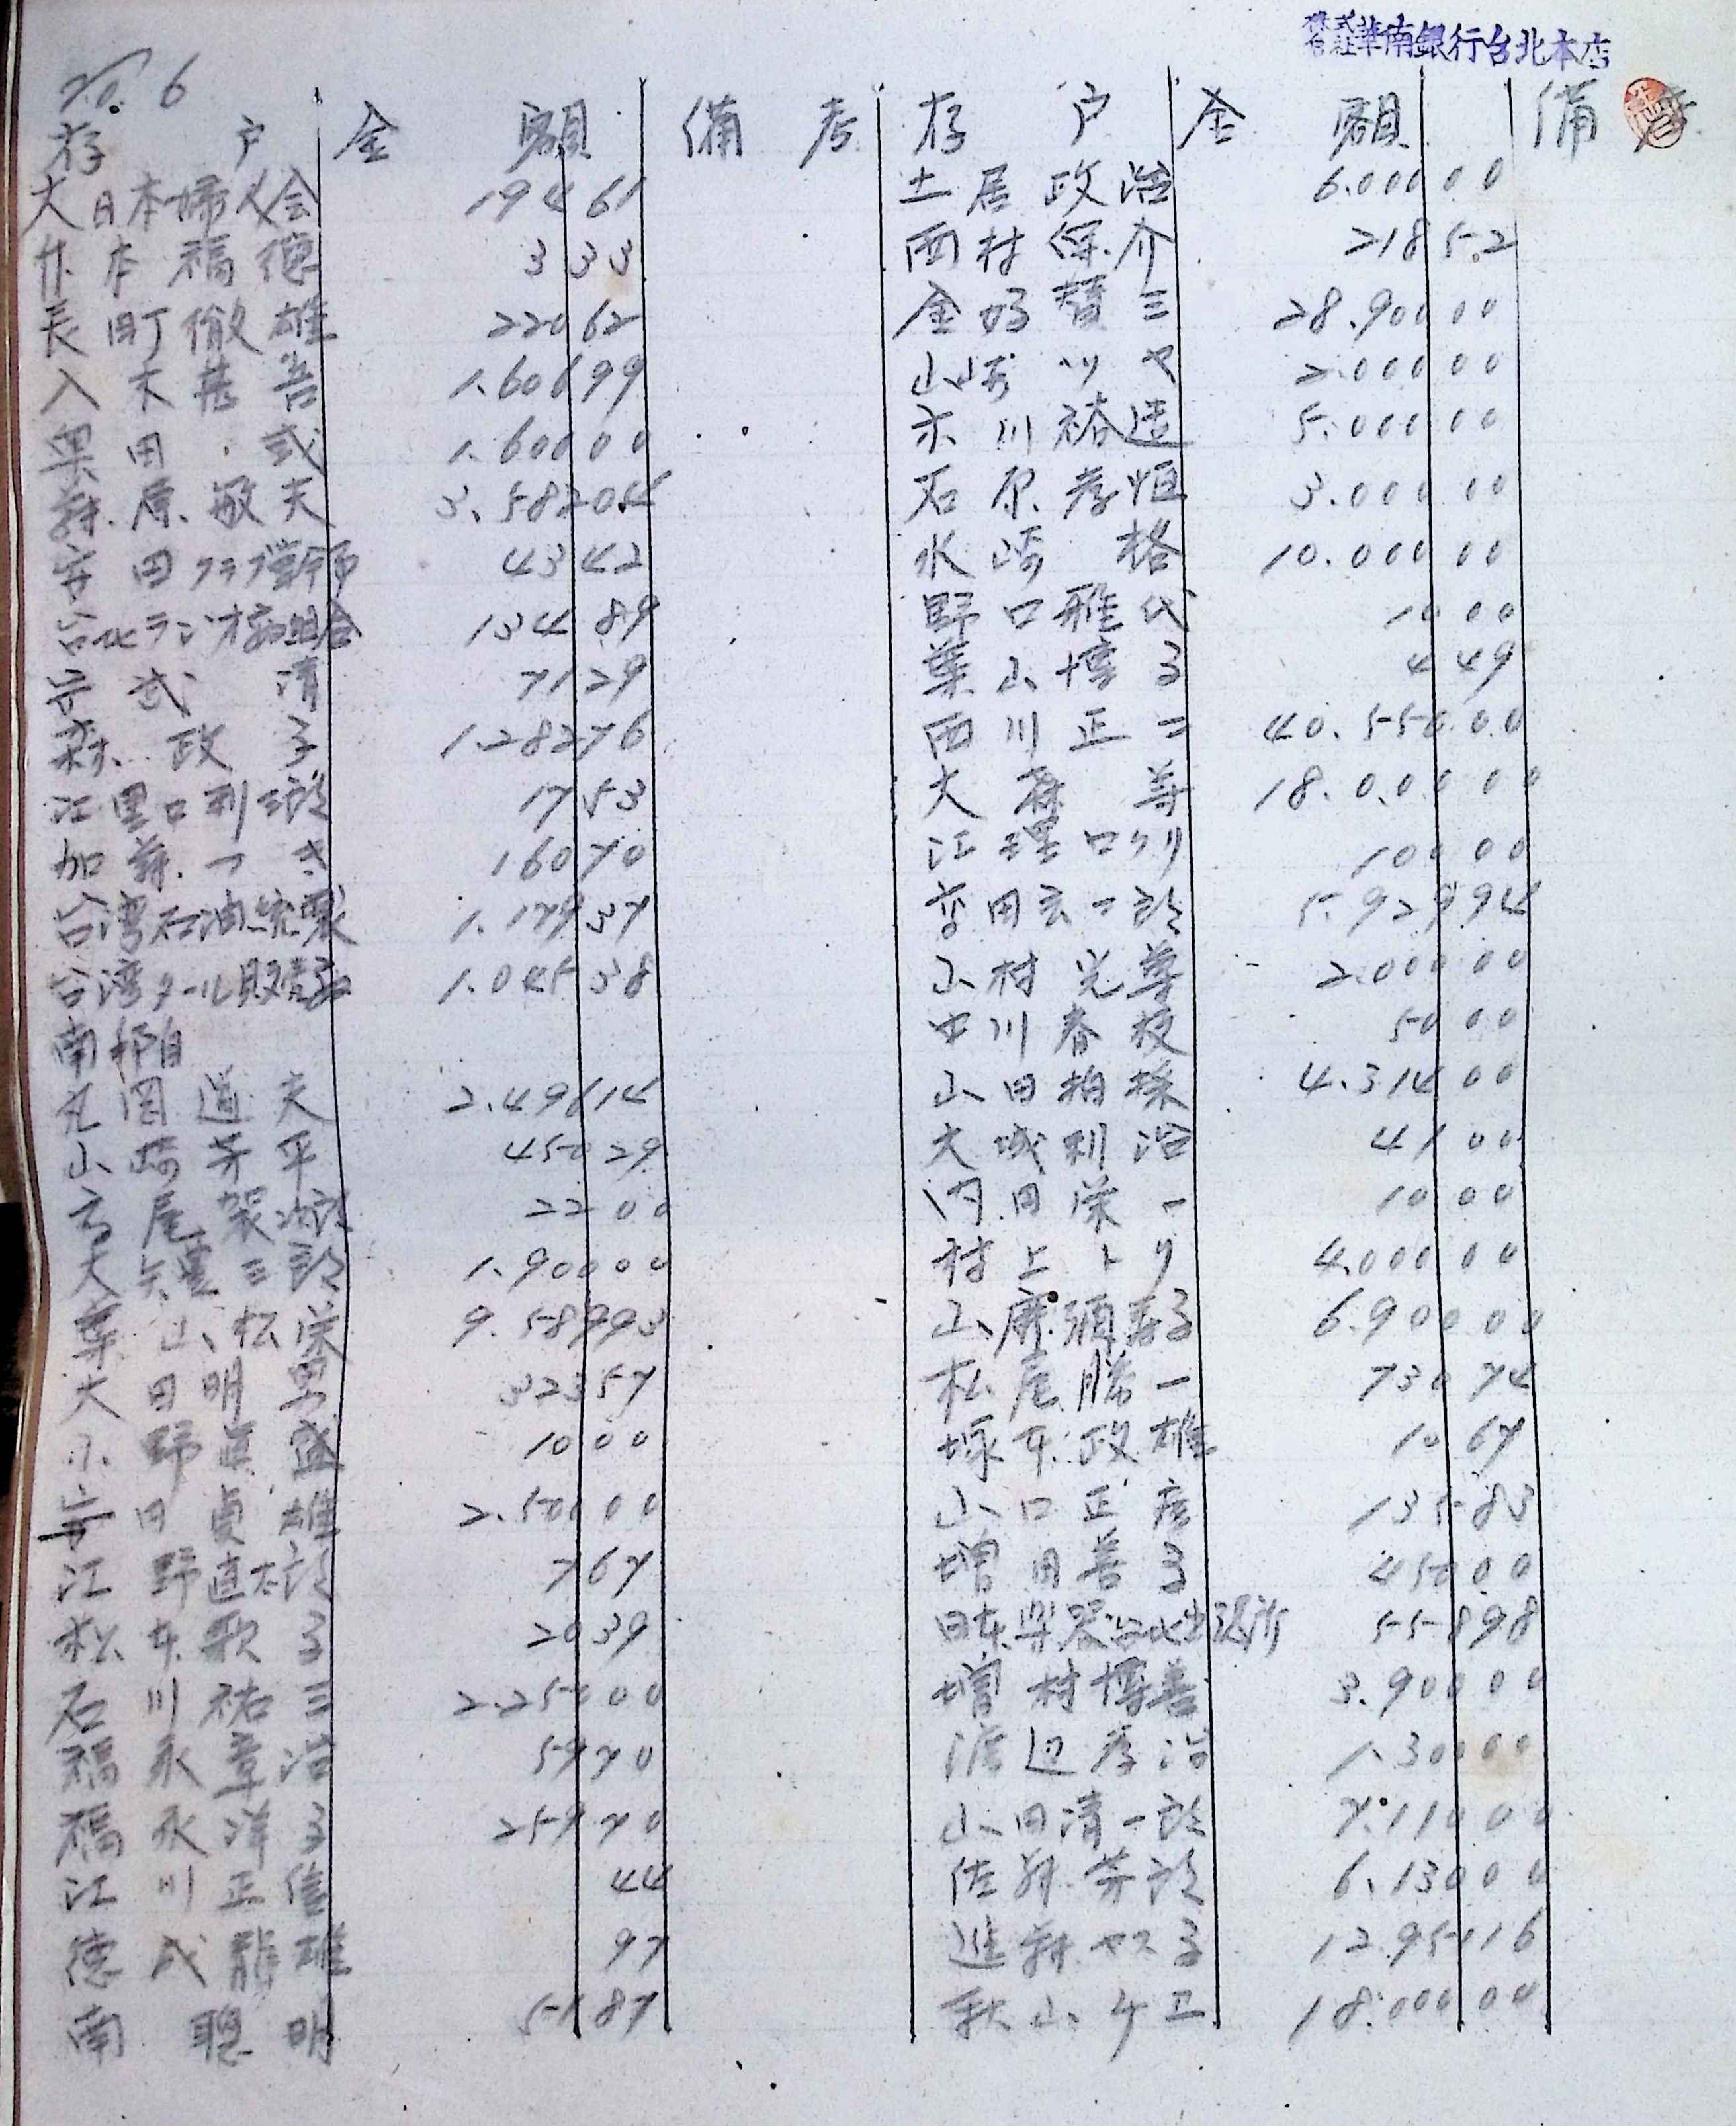 株式会社華南銀行台北本店
No. 6
存 户 金 額 備 考
大日本婦人会 194 61
廾本福德 3 33
長町徹雄 220 62
入木甚吉 1.606 99
奥田 或 1.600 00
蘇原敏夫 3.582 04
43 42
台北ラジオ 組合 134 89
吉武 清 71 29
森 政子 1.282 76
江里口利三郎 17 53
加藤つき 160 70
台湾石油統制 1.179 37
台湾タール販売 1.045 38
南 柏
丸岡道夫 2.496 14
山崎芳平 450 29
高尾袈次郎 22 00
大矢重三郎 1.900 00
葉山松栄 9.589 93
大田明男 323 57
小野真盛 10 00
田貞雄 2.500 00
江野直太郎 7 67
松本歌子 20 39
石川祐三 2.250 00
福永章治 59 70
福永洋子 259 70
江川正信 44
德成龍雄 97
南 聰明 51 87
存 户 金 額 備 考
土居政治 6.000 00
西村保介 218 52
金好賛三 28.900 00
山崎ツヤ 2.000 00
市川裕造 5.000 00
石原孝恒 3.000 00
水崎 格 10.000 00
野口雅代 10 00
葉山博子 4 49
西川正二 40.550 00
大森 等 18.000 00
江里口クリ 100 00
幸田玄一郎 5.929 94
山村光尊 2.000 00
中川春枝 50 00
山田柏採 4.314 00
大城利治 41 00
内田栄一 10 00
村上トリ 4.000 00
山原須寿子 6.900 00
松尾勝一 730 74
塚本政雄 10 67
山口正彦 135 83
増田善子 450 00
日本楽器台北出張所 558 98
増村博善 3.900 00
渡辺孝治 1.300 00
山田清一郎 7.110 00
佐藤芳郎 6.130 00
進藤ヤス子 12.951 16
秋山ケエ 18.000 00